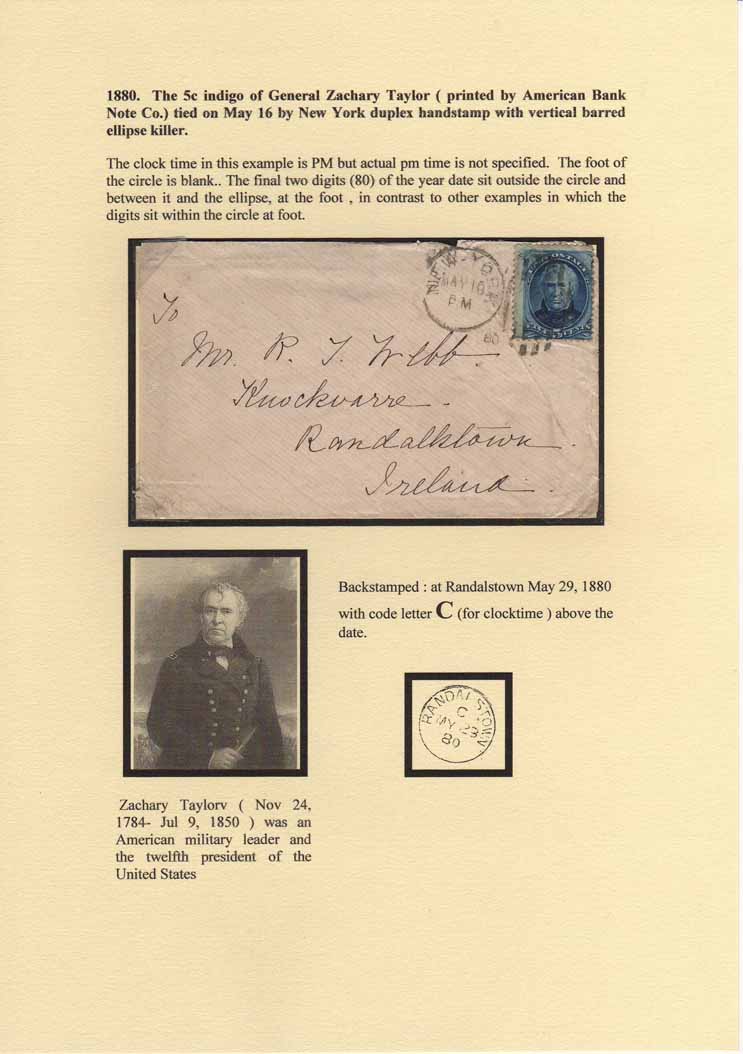 1880. The 5c indigo of General Zachary Taylor ( printed by American Bank
Note Co.) tied on May 16 by New York duplex handstamp with vertical barred
ellipse killer.
The clock time in this example is PM but actual pm time is not specified. The foot of
the circle is blank.. The final two digits (80) of the year date sit outside the circle and
between it and the ellipse, at the foot , in contrast to other examples in which the
digits sit within the circle at foot.
NEW-YORK
MAY 16
PM
80
To
Mr. R. T. Webb
Knockvarre
Randalktown
Ireland
Backstamped : at Randalstown May 29, 1880
with code letter C (for clocktime ) above the
date.
RANDALSTOWN
C
MAY 29
80
Zachary Taylorv ( Nov 24,
1784- Jul 9, 1850 ) was an
American military leader and
the twelfth president of the
United States